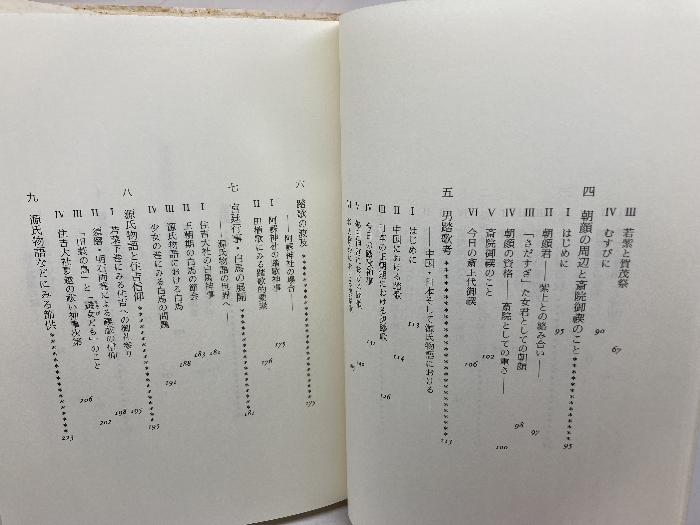 III 若紫と賀茂祭 67
IV むすびに 90
四 朝顔の周辺と斎院御禊のこと 95
I はじめに 95
II 朝顔君――紫上との絡み合い―― 97
III 「さだすぎ」た女君としての朝顔 98
IV 朝顔の資格――斎院としての重さ―― 100
V 斎院御禊のこと 102
VI 今日の斎王代御禊 106
五 男踏歌考 113
――中国・日本そして源氏物語における
I はじめに 113
II 中国における踏歌 114
III 日本の王朝期における男踏歌 126
IV 今日の踏歌神事 132
六 踏歌の波及 175
――阿蘇神社の場合――
I 阿蘇神社の踏歌神事 175
II 田植歌にみる踏歌的要素 176
七 宮廷行事・白馬の展開 181
――源氏物語の世界へ――
I 住吉大社の白馬神事 182
II 王朝期の白馬の節会 183
III 源氏物語における白馬 188
IV 少女の巻にみる白馬の問題 191
八 源氏物語と住吉信仰 195
I 若菜下巻にみる住吉への御社参り 195
II 須磨・明石両巻による禊祓の信仰 198
III 「田蓑の島」と「遊女ども」のこと 202
IV 住吉大社参進の歌い神事次第 206
九 源氏物語などにみる節供 223